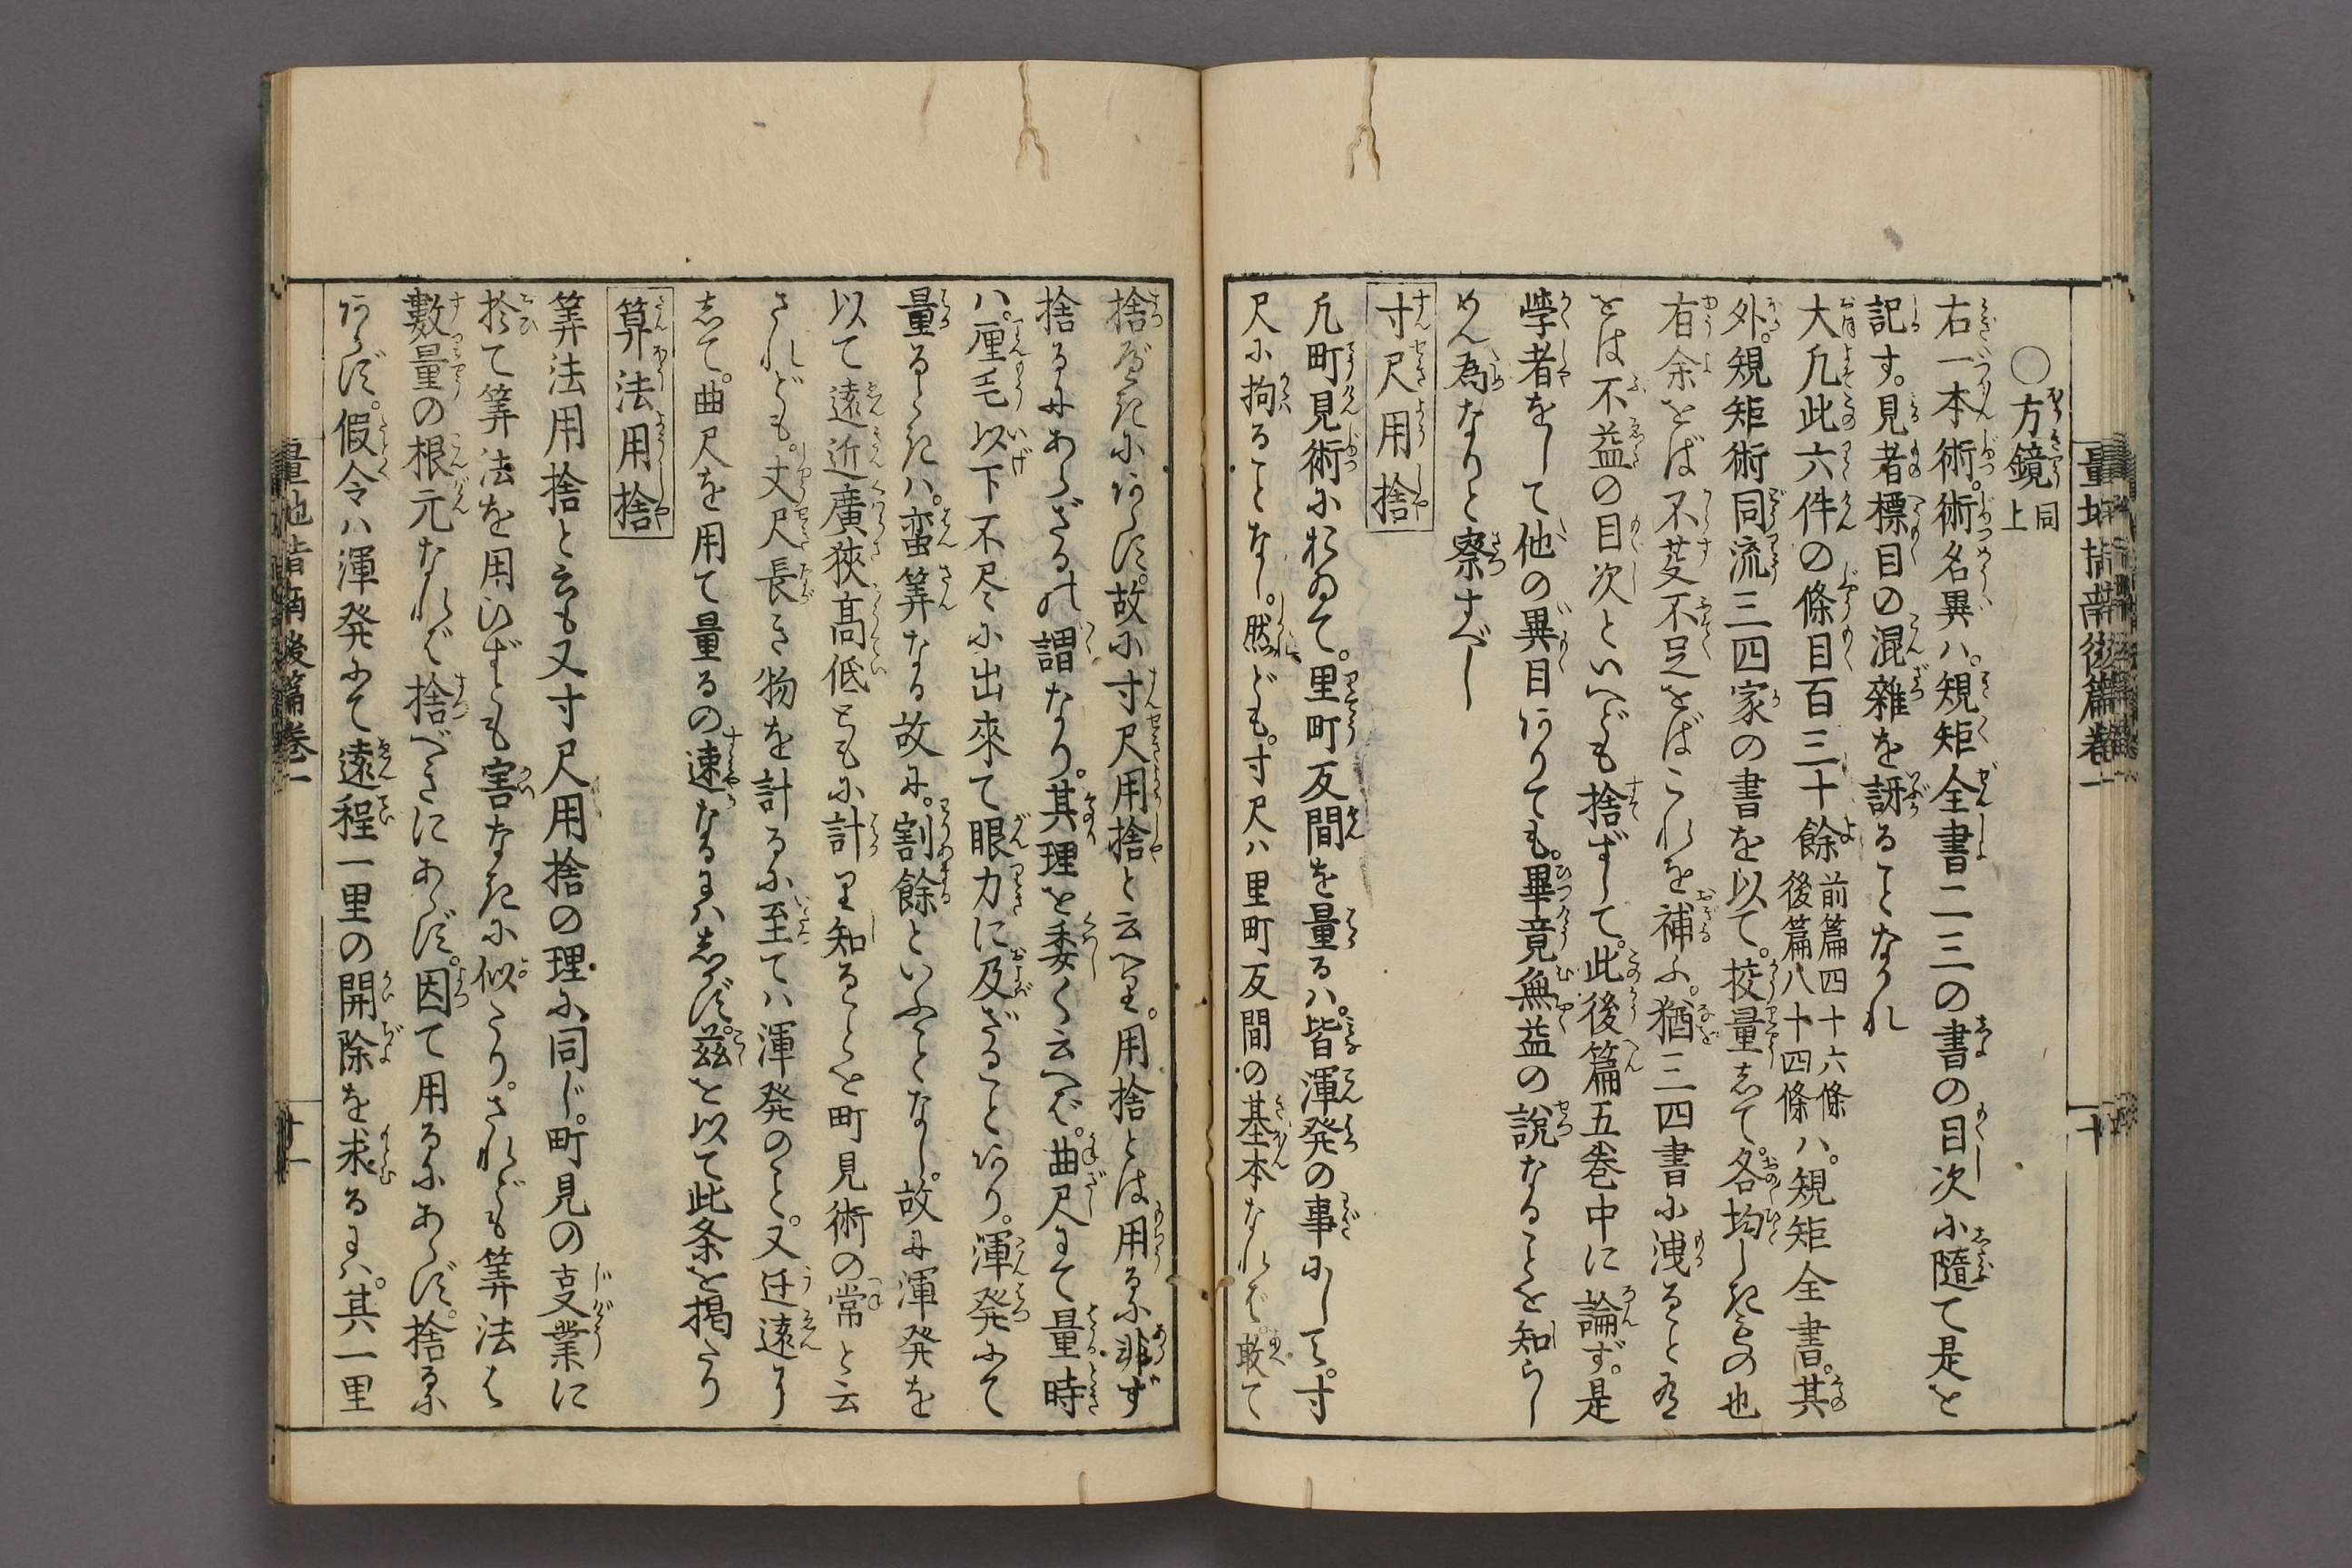 量地指南後篇巻一
十
○方鏡 同上
右一本術。術名異ハ。規矩全書二三の書の目次に隨て是を
記す。見者標目の混雜を訝ることなかれ
大凡此六件の條目百三十餘 前篇四十六條 後篇八十四條 ハ。規矩全書。其
外。規矩術同流三四家の書を以て。挍量して。各均しきもの也
有余をば不芟不足をばこれを補ふ。猶三四書に洩ること有
とは不益の目次といへども捨ずして。此後篇五巻中に論ず。是
學者をして他の異目ありても。畢竟無益の說なることを知らし
めん為なりと察すべし
寸尺用捨
凡町見術におゐて。里町反間を量るハ。皆渾発の事にして。寸
尺に拘ることなし。然ども。寸尺ハ里町反間の基本なれば。敢て
捨べきにあらず。故に寸尺用捨と云へり。用捨とは用るに非ず
捨るにあらざるの謂なり。其理を委く云へば。曲尺にて量時
ハ。厘毛以下不尽に出來て眼力に及ざることあり。渾発にて
量るときハ。蛮筭なる故に。割餘といふことなし。故に渾発を
以て遠近廣狹高低ともに計里知ることを町見術の常と云
されども。丈尺長き物を計るに至てハ渾発のこと。又迂遠なり
して。曲尺を用て量るの速なるにハしかず。茲を以て此条を掲たり
算法用捨
筭法用捨と云も又寸尺用捨の理に同じ。町見の支業に
於て筭法を用ひずとも害なきに似たり。されども筭法は
數量の根元なれば捨べきにあらず。因て用るにあらず。捨るに
あらず。假令ハ渾発にて遠程一里の開除を求るにハ。其一里
量地指南後篇巻一
十一